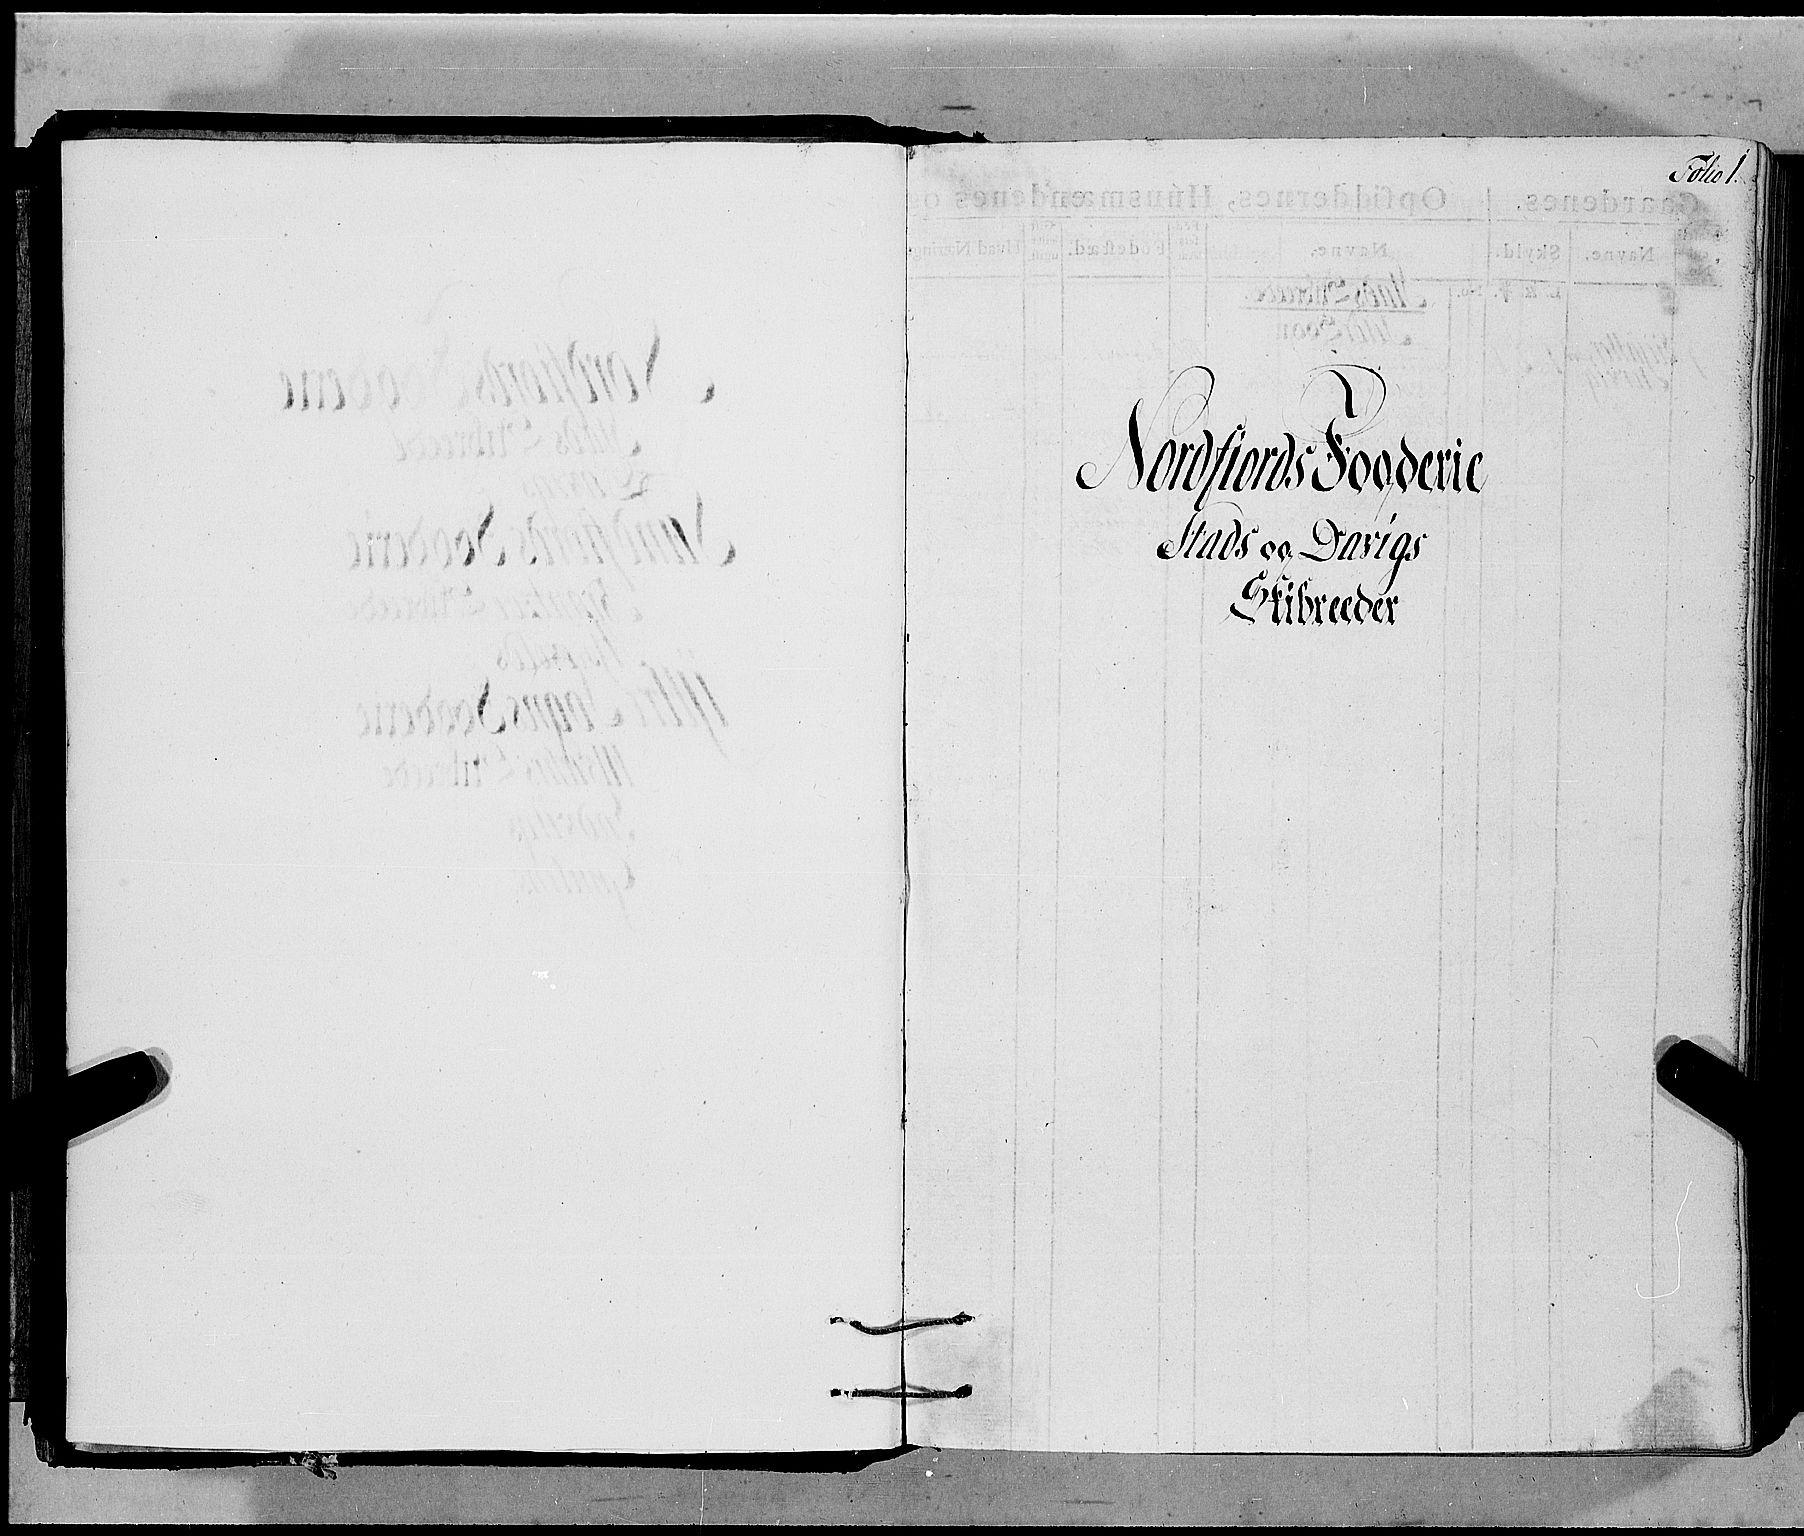 Folio 1.
Nordfiords Fogderie
Stads og Davigs
Skibreeder